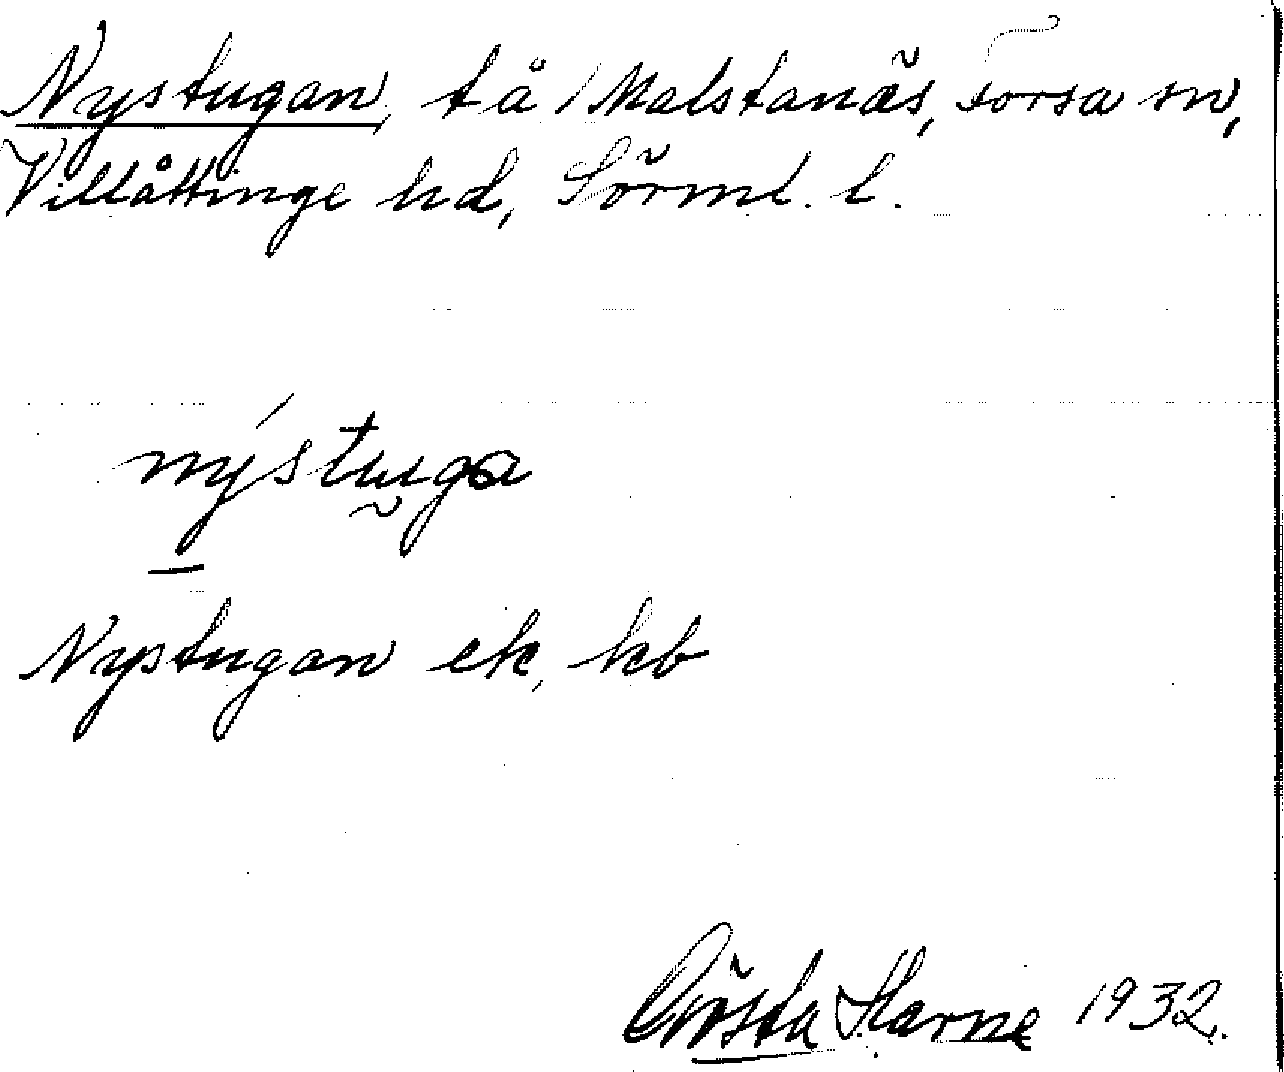 Nystugan, tå / Malstanäs, Forsa sn,
Villåttinge hd, Sörml. l.
nýstuga
Nystugan ek, kb
Gösta Harne 1932.